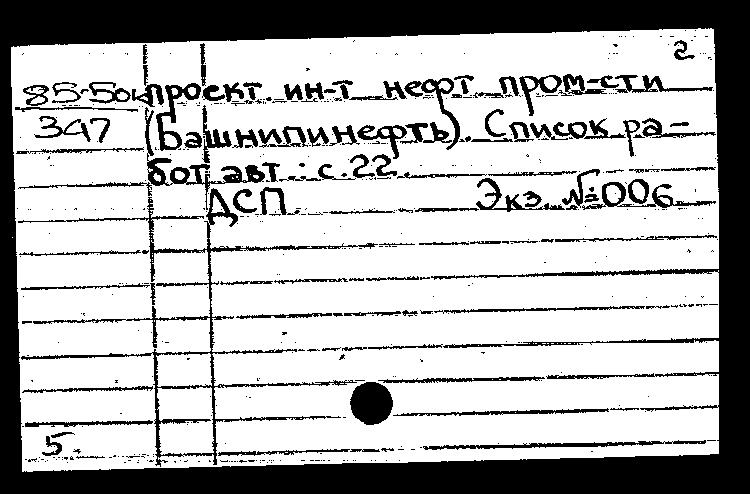 2
85-5ок проект. ин-т нефт. пром-сти
347 (Башнипинефть). Список ра-
бот авт.: с.22.
ДСП. Экз. №006
5.